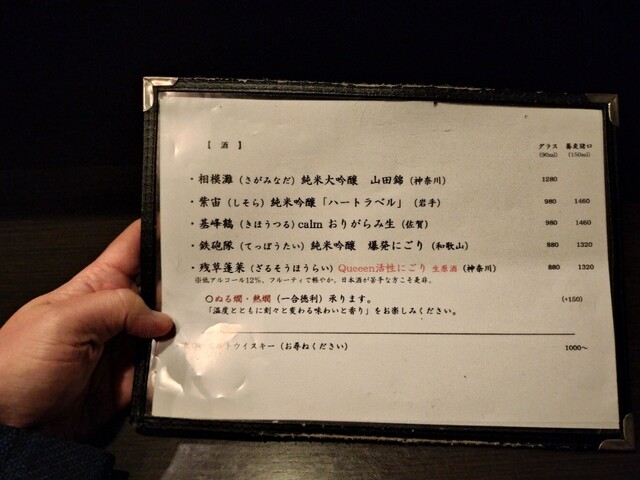 【 酒 】 グラス 蕎麦猪口
(90ml) (150ml)
・相模灘（さがみなだ）純米大吟醸 山田錦（神奈川） 1280
・紫宙（しそら）純米吟醸「ハートラベル」（岩手） 980 1460
・基峰鶴（きほうつる）calm おりがらみ生（佐賀） 980 1460
・鉄砲隊（てっぽうたい）純米吟醸 爆発にごり（和歌山） 880 1320
・残草蓬莱（ざるそうほうらい）Queeen活性にごり 生原酒（神奈川） 880 1320
※低アルコール12%、フルーティで軽やか。日本酒が苦手な方こそ是非。
〇ぬる燗・熱燗（一合徳利）承ります。 (+150)
「温度とともに刻々と変わる味わいと香り」をお楽しみください。
ルトウイスキー（お尋ねください） 1000～